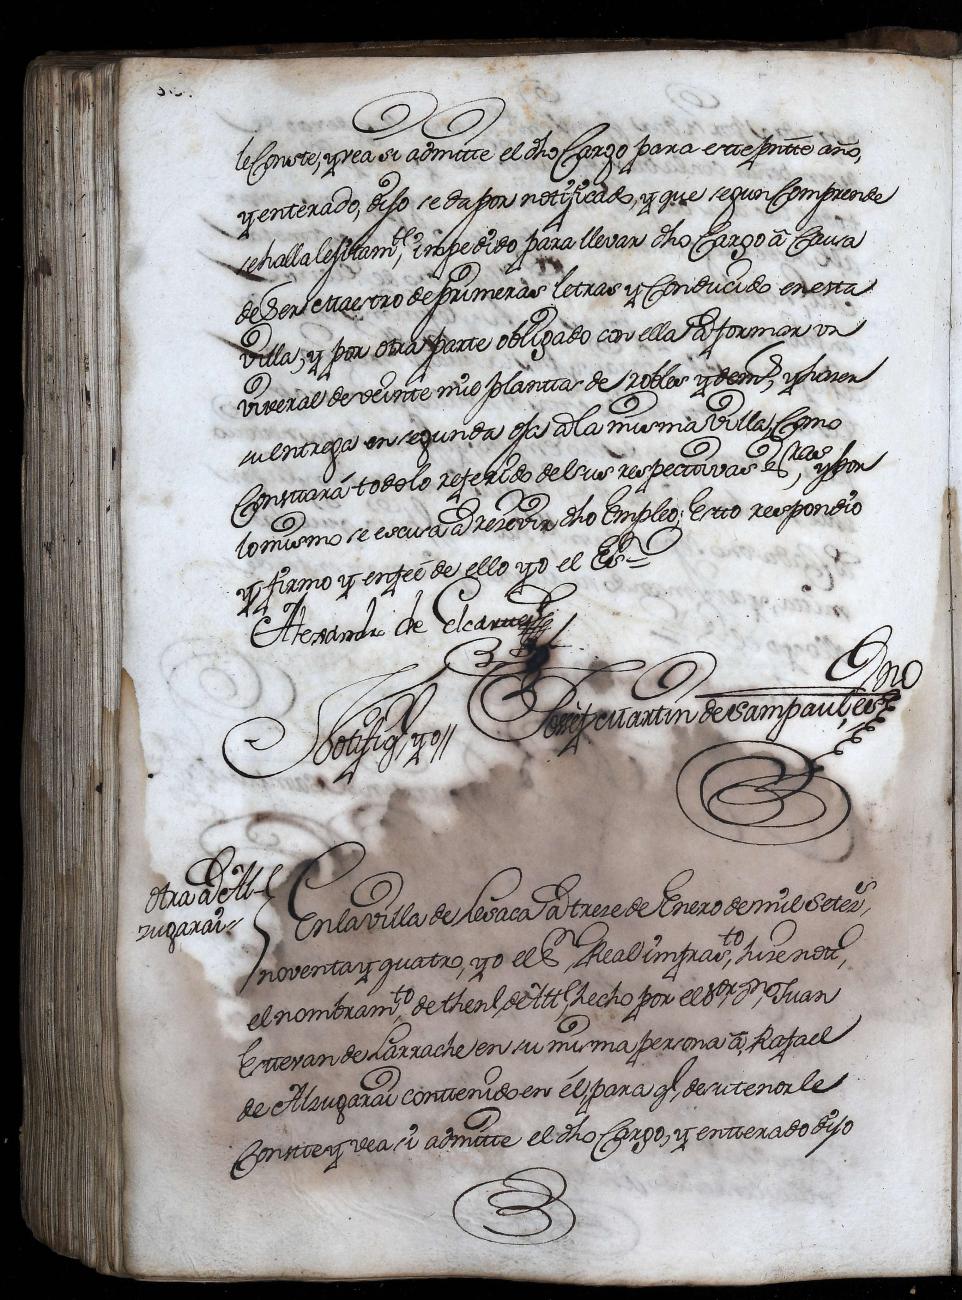 le Conste, y vea si admitte el dho Cargo para este pntte año,
y enterado, dijo se da por notificado, y que segun Comprende
se halla lejitamte, impedido para llevar dho Cargo â Causa
de Ser Maestro de primeras letras y Conducido en esta
villa, y por otra parte obligado con ella â formar un
viveral de veinte mil planttas de robles y demas, y hacer
su entrega en segunda oja a la misma villa; Como
Constará todo lo referido de sus respectivas Essras, y por
lo mismo se escusa â recevir dho Empleo; Esto respondio
y firmo y en fee de ello yo el Esno
Alexandro de Elcarte
Notifiq, yo //
Josef Martin de Sampaul, esno
Otra â Al-
zugarai
En la villa de Lesaca â trese de Enero de mil Setezs,
noventa y quatro, yo el Esno Real infrasto, hize nott,
el nombramto de thente de Alle, hecho por el Sor Dn Juan
Estevan de Larrache en su misma persona â, Rafael
de Alzugarai conttenido en él, para q, de su tenor le
Conste y vea si admitte el dho Cargo, y entterado dijo